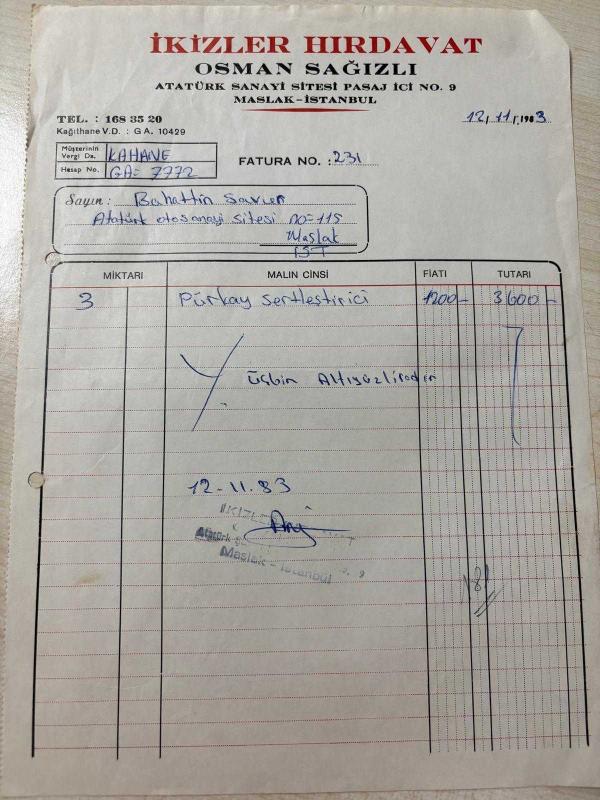 İKİZLER HIRDAVAT
OSMAN SAĞIZLI
ATATÜRK SANAYİ SİTESİ PASAJ İCİ NO. 9
MASLAK-İSTANBUL
TEL. : 168 35 20
Kağıthane V.D. : GA. 10429
12/11/1983
Müşterinin Vergi Da. KAHANE
Hesap No. GA= 7772
FATURA NO. : 231
Sayın : Bahattin
Atatürk otosanayi sitesi no=115
Maslak
İST
MİKTARI MALIN CİNSİ FİATI TUTARI
3 Pürkay Sertleştirici 1200- 3600-
Y. üçbin Altıyüzliradır
12-11.83
İKİZLE
Atatürk
Maslak - İstanbul